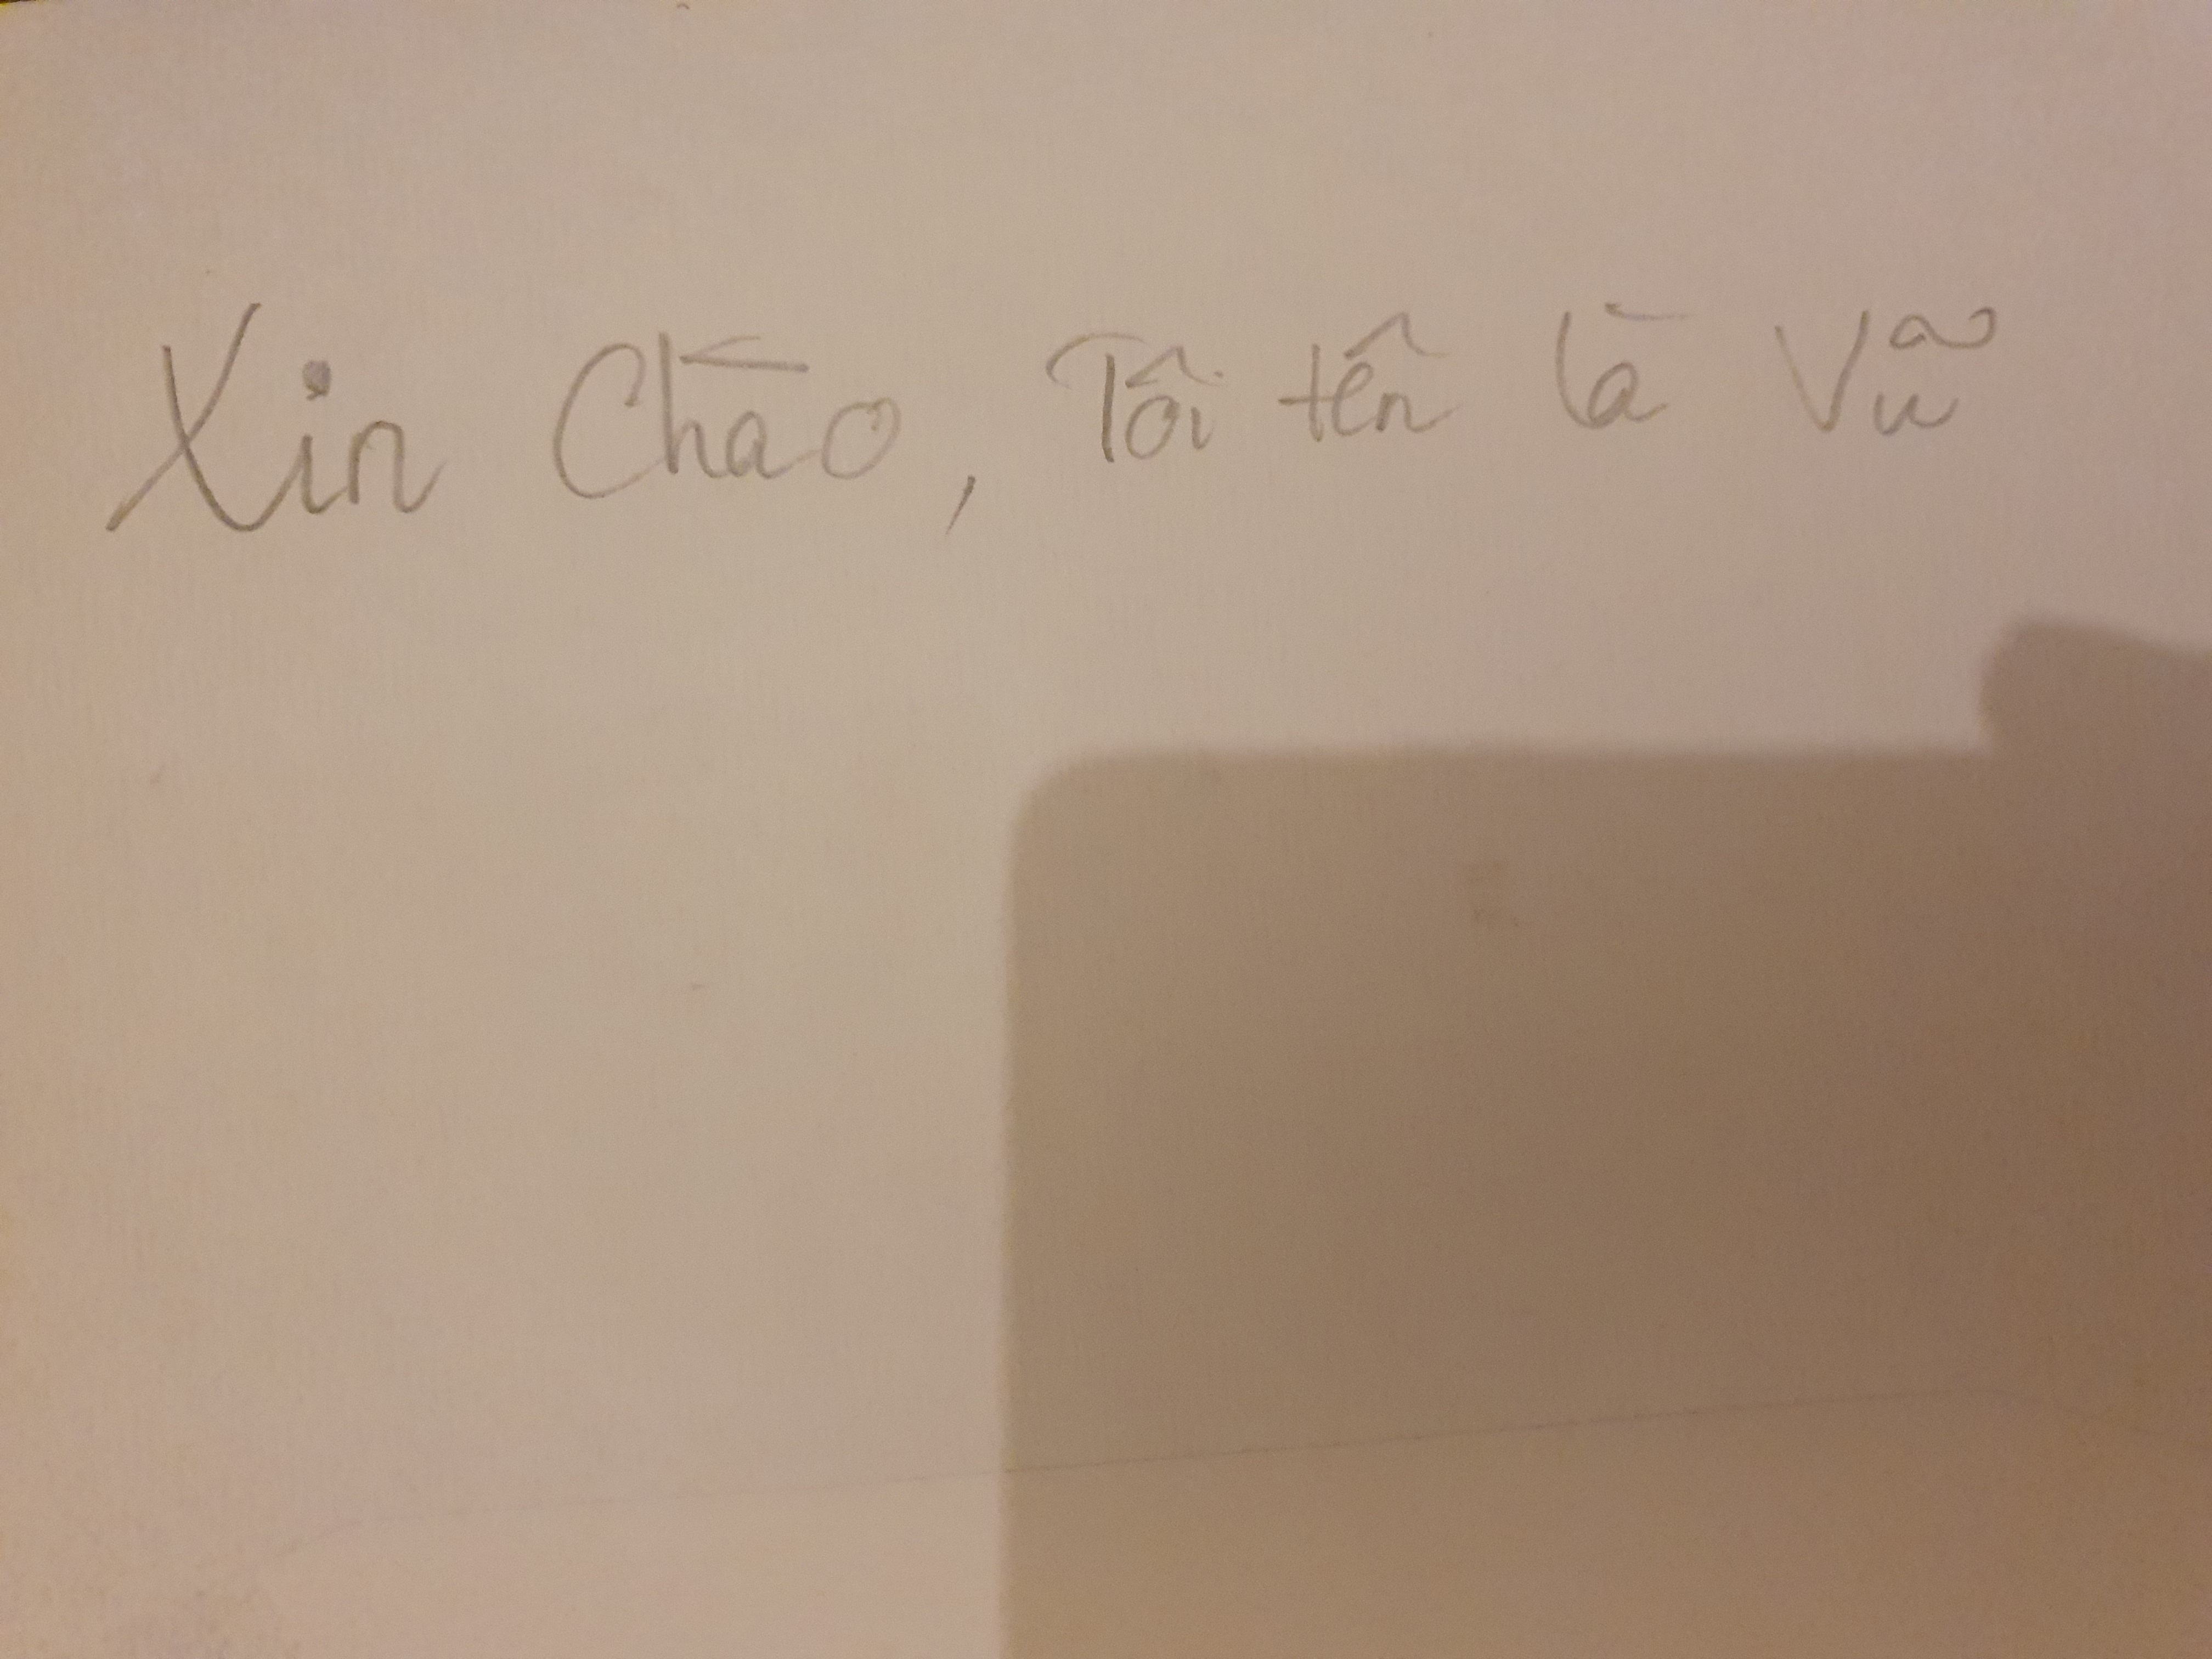 Xin Chào, Tôi tên là Vũ